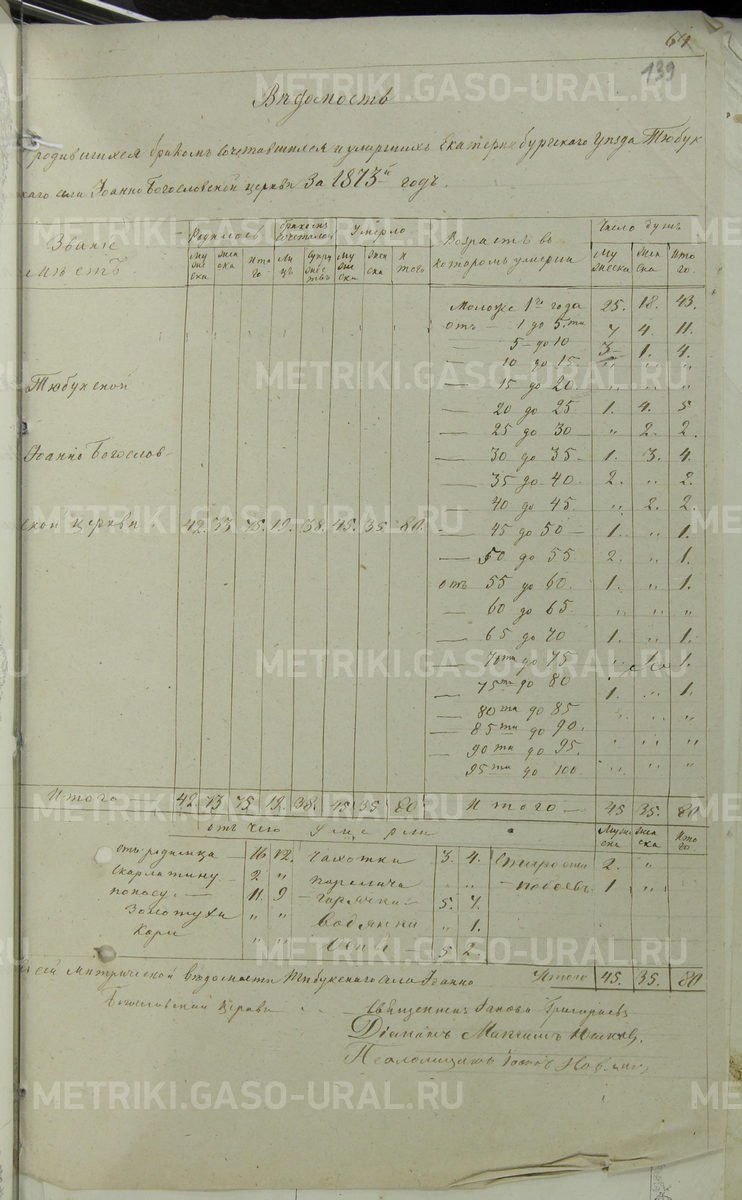 64
139
METRIKI.GASO-URAL.RU
Вѣдомость
родившихся бракомъ сочетавшихся и умершихъ Екатеринбургскаго уѣзда Тюбук
скаго села Іоанно Богословской церкви За 1873й годъ.
Званіе мѣстъ
Родилось
бракомъ сочеталось
Умерло
Возрастъ въ которомъ умерли
Число душъ
Мужеска Женска Итого Лицъ Супружествъ Мужеска Женска Итого Мужеска Женска Итого.
Моложе 1го года 25. 18. 43.
отъ — 1 до 5.ти 7 4. 11.
— 5 — до 10 3 1. 4.
— 10 до 15. " " "
Тюбукской — 15 до 20. " " "
— 20 до 25 1. 4. 5
— 25 до 30 " 2. 2.
Іоанно Богослов- — 30 до 35 1. 3. 4.
— 35 до 40. 2. " 2.
— 40 до 45. " 2. 2.
ской церкви 42. 33 75. 19. 38. 45. 35 80. — 45 до 50 — 1. " 1.
— 50 до 55 2. " 1.
отъ 55 до 60. 1. " 1.
— 60 до 65. " " "
— 65 до 70 1. " 1.
— 70ти до 75 " 1.
— 75ти до 80 1. " 1.
— 80ти до 85 " " "
— 85ти до 90.
— 90ти до 95. " " "
95ти до 100. " " "
Итого 42. 33 75 19. 38. 45 35 80 Итого — 45 35. 80
отъ чего умерли Мужеска Женска Итого
отъ родимца — 16 12. Чахотки 3. 4. Старости 2. "
Скарлатину — 2 " Паралича " " Побоевъ 1 "
поносу — 11. 9 Горячки — 5. 7.
Золотухи " " Водянки " 1.
Кори " " Оспы 5 2.
Итого 45. 35. 80
Къ сей метрической вѣдомости Тюбукскаго села Іоанно
Богословской церкви Священникъ Григорьевъ
Діаконъ Максимъ
Псаломщикъ